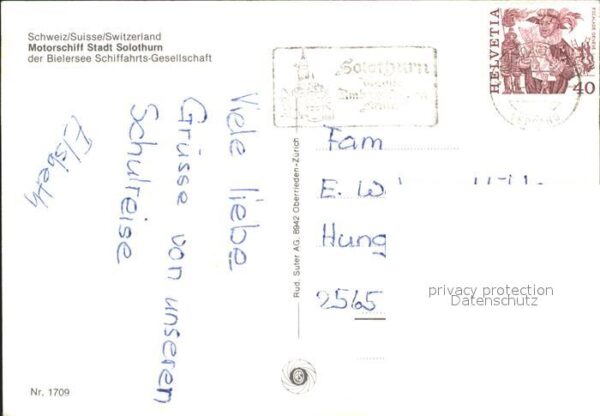 Schweiz/Suisse/Switzerland
Motorschiff Stadt Solothurn
der Bielersee Schiffahrts-Gesellschaft
Solothurn
HELVETIA
40
Viele liebe
Grüsse von unseren
Schulreise
Elsbeth
Rud. Suter AG. 8942 Oberrieden-Zürich
Fam
E. W
Hung
2565
privacy protection
Datenschutz
Nr. 1709